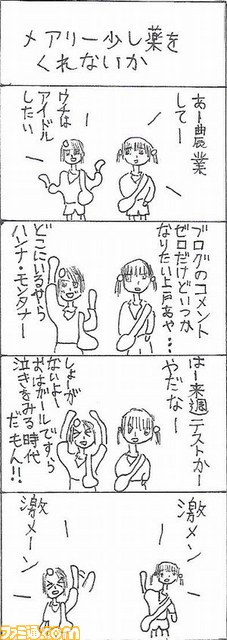 メアリー少し薬を
くれないか
あー農業
してー
ウチは
アイドル
したい
ブログのコメント
ゼロだけどいつか
なりたい上戸あや…
どこにいるやら
ハンナ・モンタナー
はー来週テストかー
やだなー
しょーが
ないよー
おはガールですら
泣きをみる時代
だもん!!
激メン
激メーン
ファミ通.com